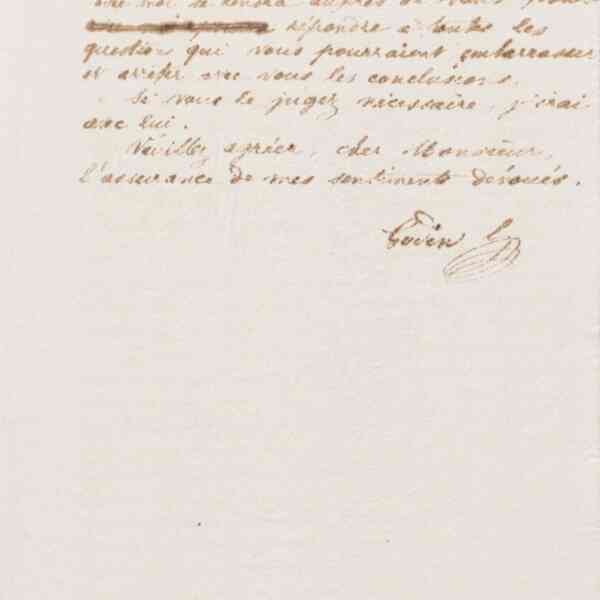 moi se rendra auprès de vous pour
répondre à toutes les
questions qui vous pourraient embarrasser
et arrêter avec vous les conclusions.
Si vous le jugez nécessaire, j'irai
avec lui.
Veuillez agréer, cher Monsieur,
l'assurance de mes sentiments dévoués.